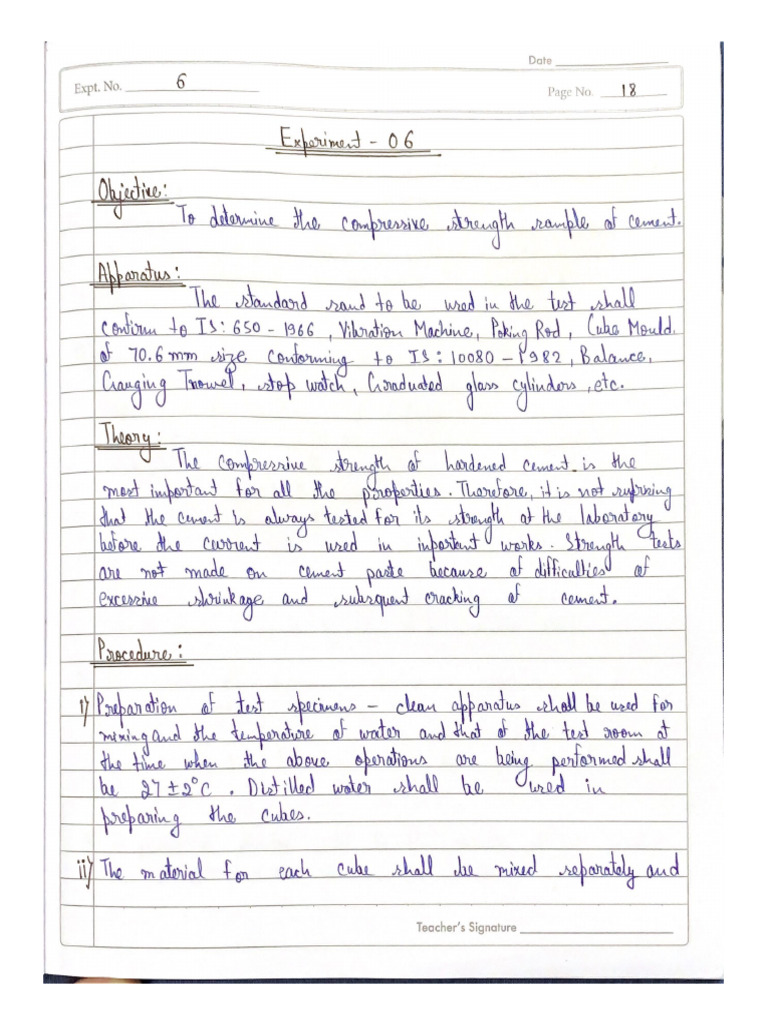 Date
Expt. No. 6
Page No. 18
Experiment - 06
Objective:
To determine the compressive strength sample of cement.
Apparatus:
The standard sand to be used in the test shall
confirm to IS: 650 - 1966, Vibration Machine, Poking Rod, Cube Mould.
of 70.6 mm size conforming to IS: 10080 - 1982, Balance,
Gauging Trowel, stop watch, Graduated glass cylinders, etc.
Theory:
The compressive strength of hardened cement is the
most important for all the properties. Therefore, it is not suprising
that the cement is always tested for its strength at the laboratory
before the current is used in inportant works. Strength tests
are not made on cement paste because of difficulties of
excessive shrinkage and subsquent cracking of cement.
Procedure:
i) Preparation of test specimens - clean apparatus shall be used for
mixing and the temperature of water and that of the test room at
the time when the above operations are being performed shall
be 27 ± 2°C. Distilled water shall be used in
preparing the cubes.
ii) The material for each cube shall be mixed separately and
Teacher's Signature